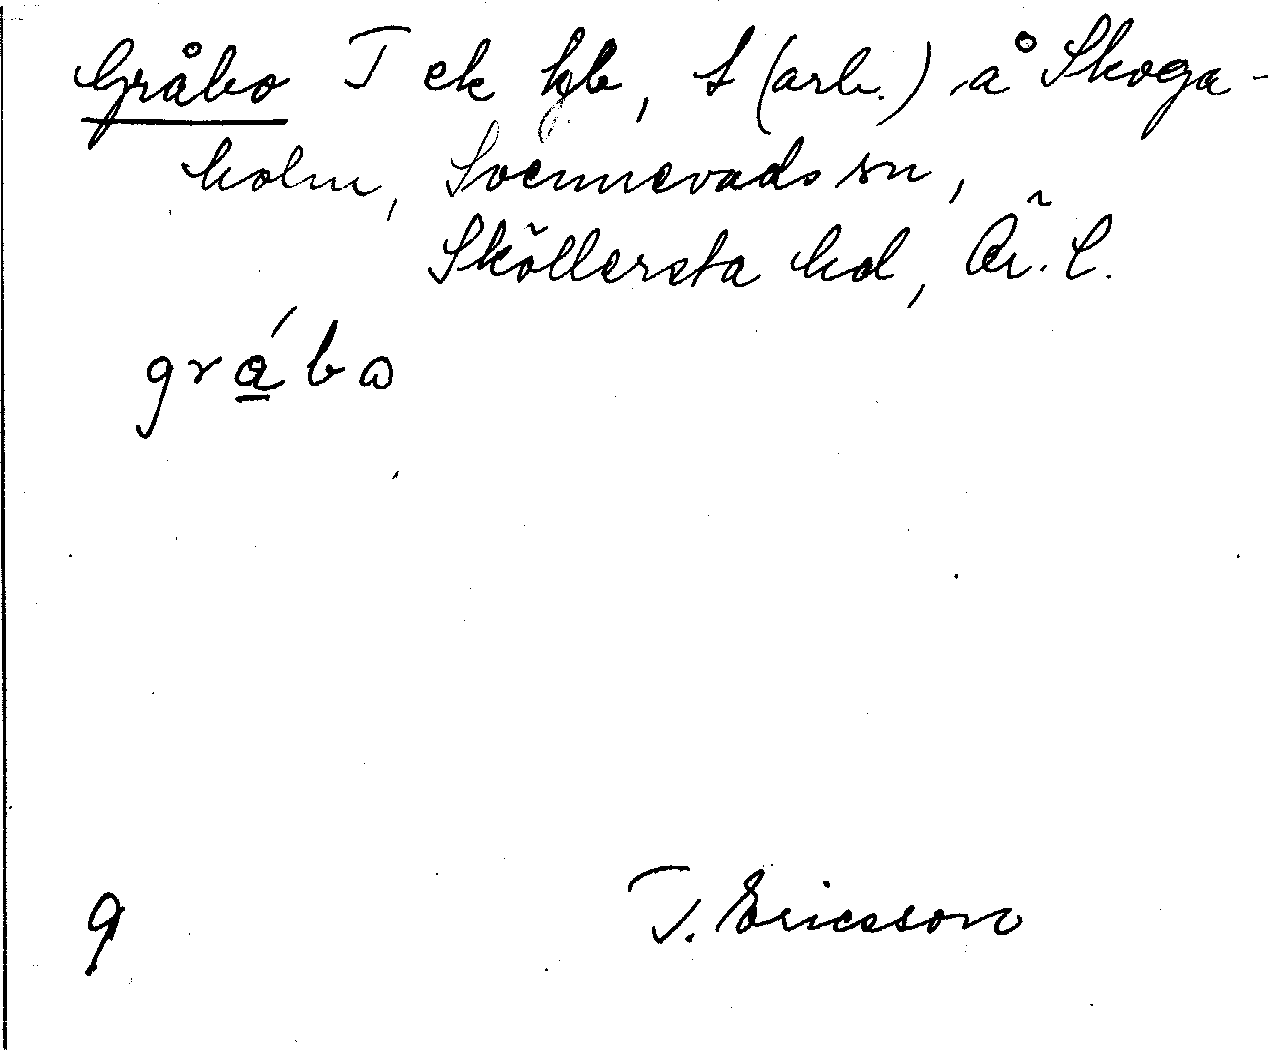 Gråbo T ek kjb, t (arb.) å Skoga-
holm, Svennevads sn,
Sköllersta hd, Ör. l.
gråbo
9 T. Ericsson